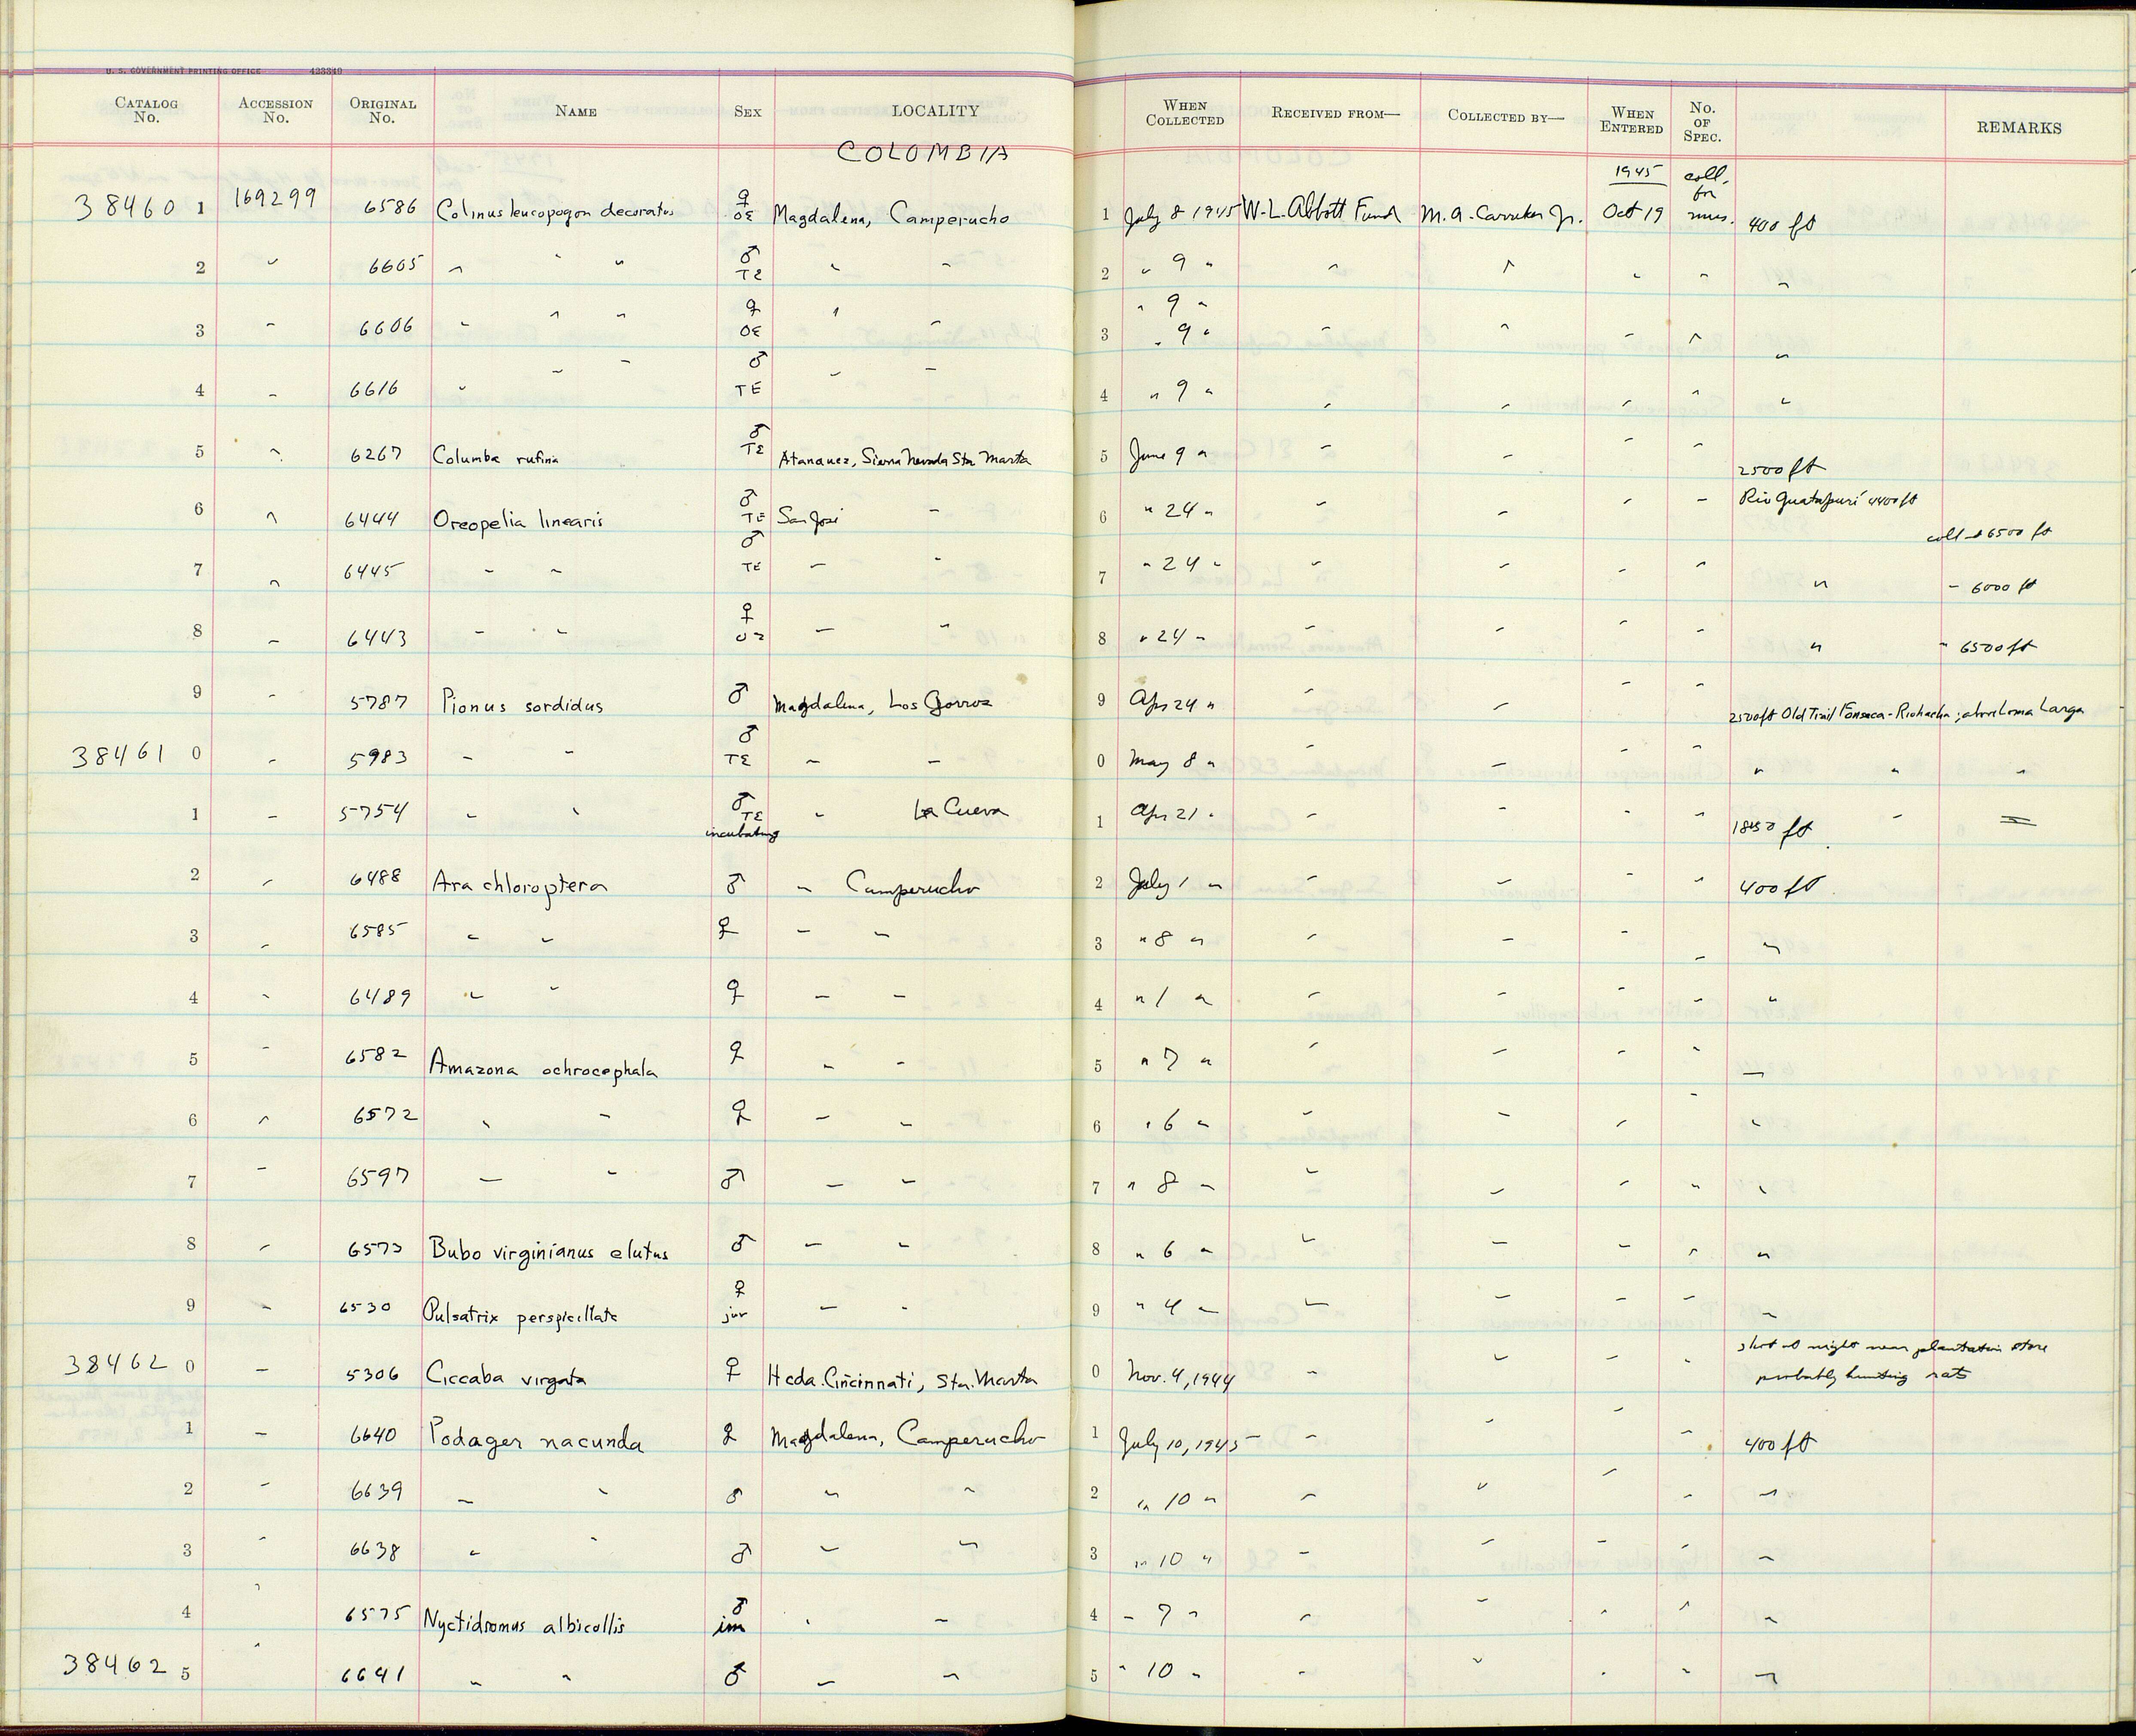 U. S. GOVERNMENT PRINTING OFFICE 423349
CATALOG No. ACCESSION No. ORIGINAL No. NAME SEX LOCALITY WHEN COLLECTED RECEIVED FROM— COLLECTED BY— WHEN ENTERED No. OF SPEC. REMARKS
COLOMBIA
1945 coll. for mus.
38460 1 169299 6586 Colinus leucopogon decoratus ♀ OE Magdalena, Camperucho 1 July 8 1945 W. L. Abbott Fund M. A. Carriker Jr. Oct 19 400 ft
2 " 6605 " " " ♂ TE " " 2 " 9 " " " " " "
" 9 "
3 " 6606 " " " ♀ OE " " 3 " 9 " " " " " "
4 " 6616 " " " ♂ TE " " 4 " 9 " " " " " "
5 " 6267 Columba rufina ♂ TE Atanquez, Sierra Nevada Sta Marta 5 June 9 " " " " " 2500 ft
6 " 6444 Oreopelia linearis ♂ TE San José " 6 " 24 " " " " " Rio Guatapurí 4400 ft coll at 6500 ft
7 " 6445 " " ♂ TE " " 7 " 24 " " " " " " " 6000 ft
8 " 6443 " " ♀ OE " " 8 " 24 " " " " " " " 6500 ft
9 " 5787 Pionus sordidus ♂ Magdalena, Los Gorros 9 Apr 24 " " " " " 2500 ft Old Trail Fonseca - Riohacha; above Loma Larga
38461 0 " 5983 " " ♂ TE " " 0 May 8 " " " " " " " "
1 " 5754 " " ♂ TE incubating " La Cueva 1 Apr 21 " " " " " 1850 ft " =
2 " 6488 Ara chloroptera ♂ " Camperucho 2 July 1 " " " " " 400 ft
3 " 6585 " " ♀ " " 3 " 8 " " " " " "
4 " 6489 " " ♀ " " 4 " 1 " " " " " "
5 " 6582 Amazona ochrocephala ♀ " " 5 " 7 " " " " " "
6 " 6572 " " ♀ " " 6 " 6 " " " " " "
7 " 6597 " " ♂ " " 7 " 8 " " " " " "
8 " 6573 Bubo virginianus elutus ♂ " " 8 " 6 " " " " " "
9 " 6530 Pulsatrix perspicillata ♀ juv " " 9 " 4 " " " " " "
38462 0 " 5306 Ciccaba virgata ♀ Hcda. Cincinnati, Sta. Marta 0 Nov. 4, 1944 " " " " shot at night near plantation store
probably hunting rats
1 " 6640 Podager nacunda ♀ Magdalena, Camperucho 1 July 10, 1945 " " " " 400 ft
2 " 6639 " " ♂ " " 2 " 10 " " " " " "
3 " 6638 " " ♂ " " 3 " 10 " " " " " "
4 " 6575 Nyctidromus albicollis ♂ im " " 4 " 7 " " " " " "
38462 5 " 6641 " " ♂ " " 5 " 10 " " " " " "